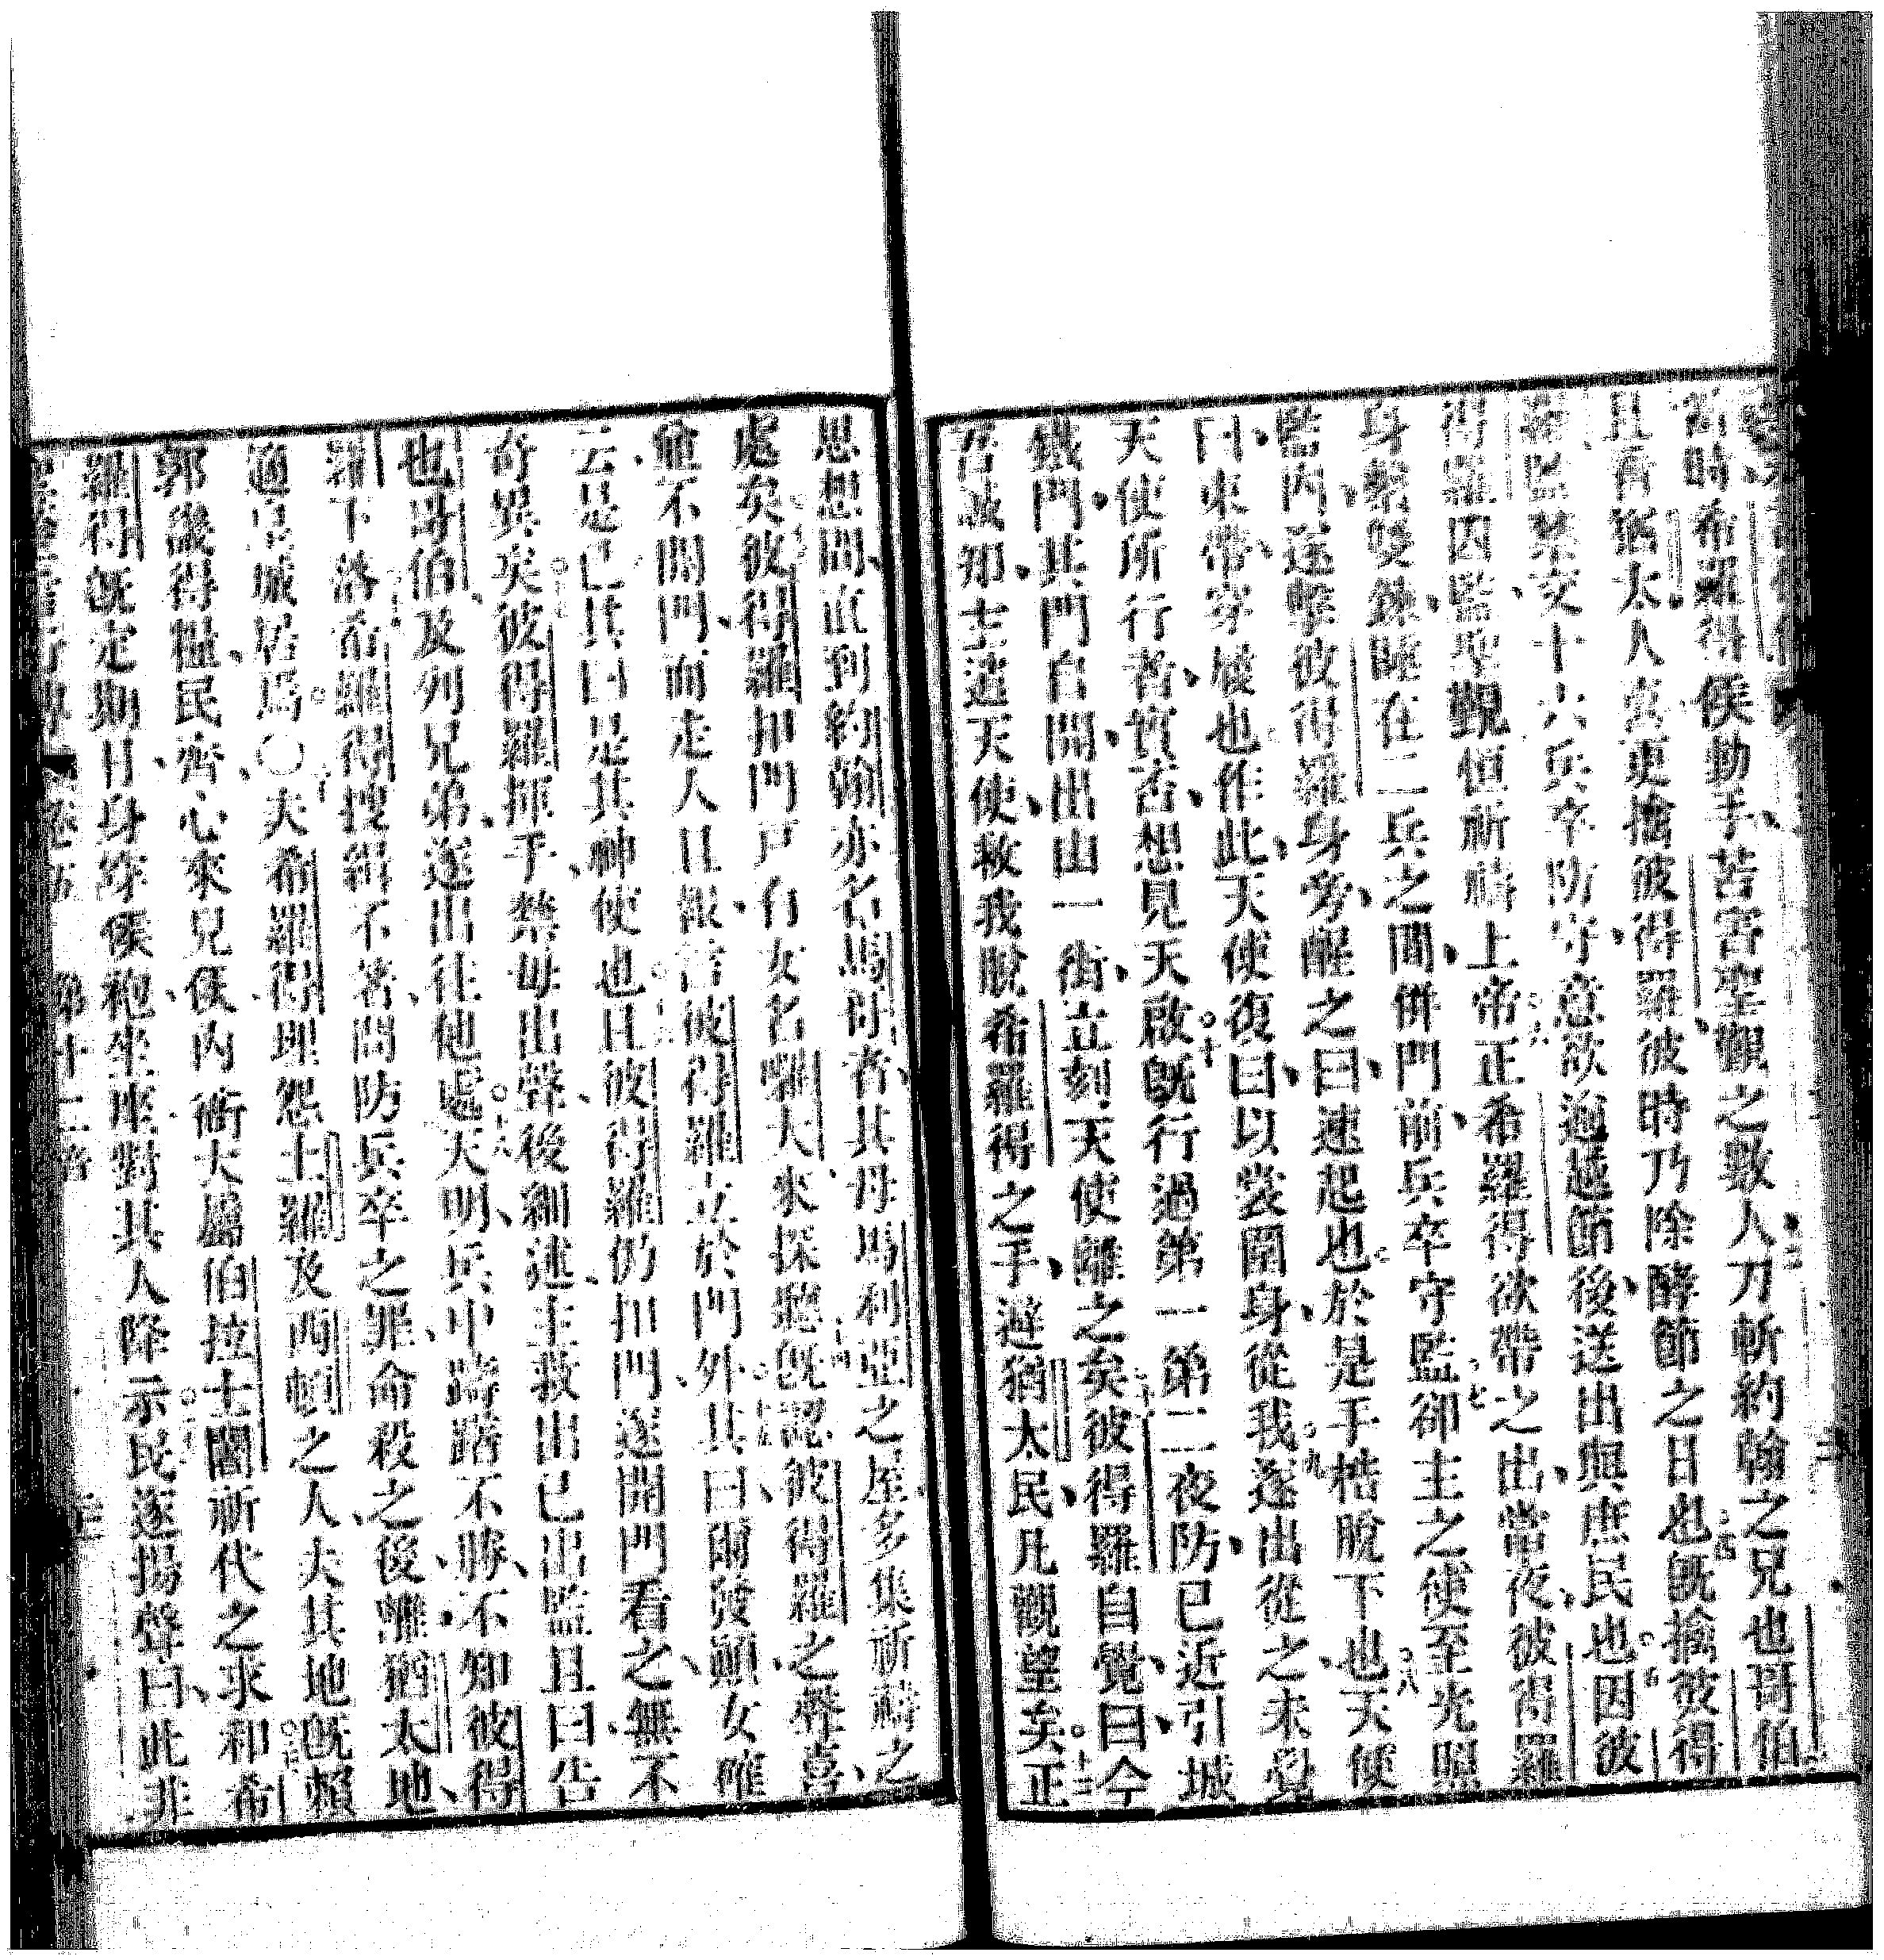 當時希羅得侯動手苦害聖觀之數人刀斬約翰之兄也哥伯
且看猶太人喜更擒彼得羅彼時乃除酵節之日也旣擒彼得
羅監禁交十六兵卒防守意欲逾越節後送出與庶民也因彼
得羅囚監聖觀恒祈禱上帝正希羅得欲帶之出當夜彼得羅
身繫雙鍊睡在二兵之間併門前兵卒守監卻主之使至光照
監內遂擊彼得羅身旁醒之曰速起也於是手梏脫下也天使
曰束帶穿屐也作此天使復曰以裳圍身從我遂出從之未覺
天使所行者實否想見天啟旣行過第一第二夜防已近引城
鐵門其門自開出由一街立刻天使離之矣彼得羅自覺曰今
吾誠知主遣天使救我脫希羅得之手避猶太民凡觀望矣正
思想間直到約翰亦名馬耳者其母馬利亞之屋多集祈禱之
處矣彼得羅扣門戶有女名囉大來探聽旣認彼得羅之聲喜
並不開門而走入且報言彼得羅立於門外其曰爾發顛女確
云是已其曰是其神使也且彼得羅仍扣門遂開門看之無不
奇異矣彼得羅揮手禁毋出聲後細述主救出已出監且曰告
也哥伯及列兄弟遂出往他處天明兵中躊躇不勝不知彼得
羅下落希羅得搜緝不著問防兵卒之罪命殺之後離猶太地
適 城居焉〇夫希羅得理怨土羅及西頓之人夫其地旣賴
郭畿得糧民齊心來見侯內衙大屬伯拉士闍祈代之求和希
羅得旣定期日身穿侯袍坐座對其人降示民遂揚聲曰此非
第十二章